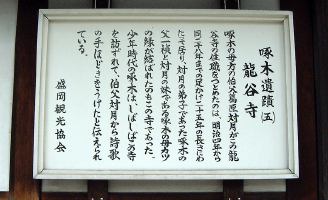 啄木遺蹟(五)
龍谷寺
啄木の母方の伯父葛原対月がこの龍
谷寺の住職をつとめたのは、明治四年から
同二十八年までの足かけ二十五年の長きにわ
たって居り、対月の弟子であった啄木の
父一禎と対月の妹である啄木の母カツ
の縁が結ばれたのもこの寺であった。
少年時代の啄木は、しばしばこの寺
を訪ずれて、伯父対月から詩歌
の手ほどきをうけたと伝えられ
ている。
盛岡観光協会